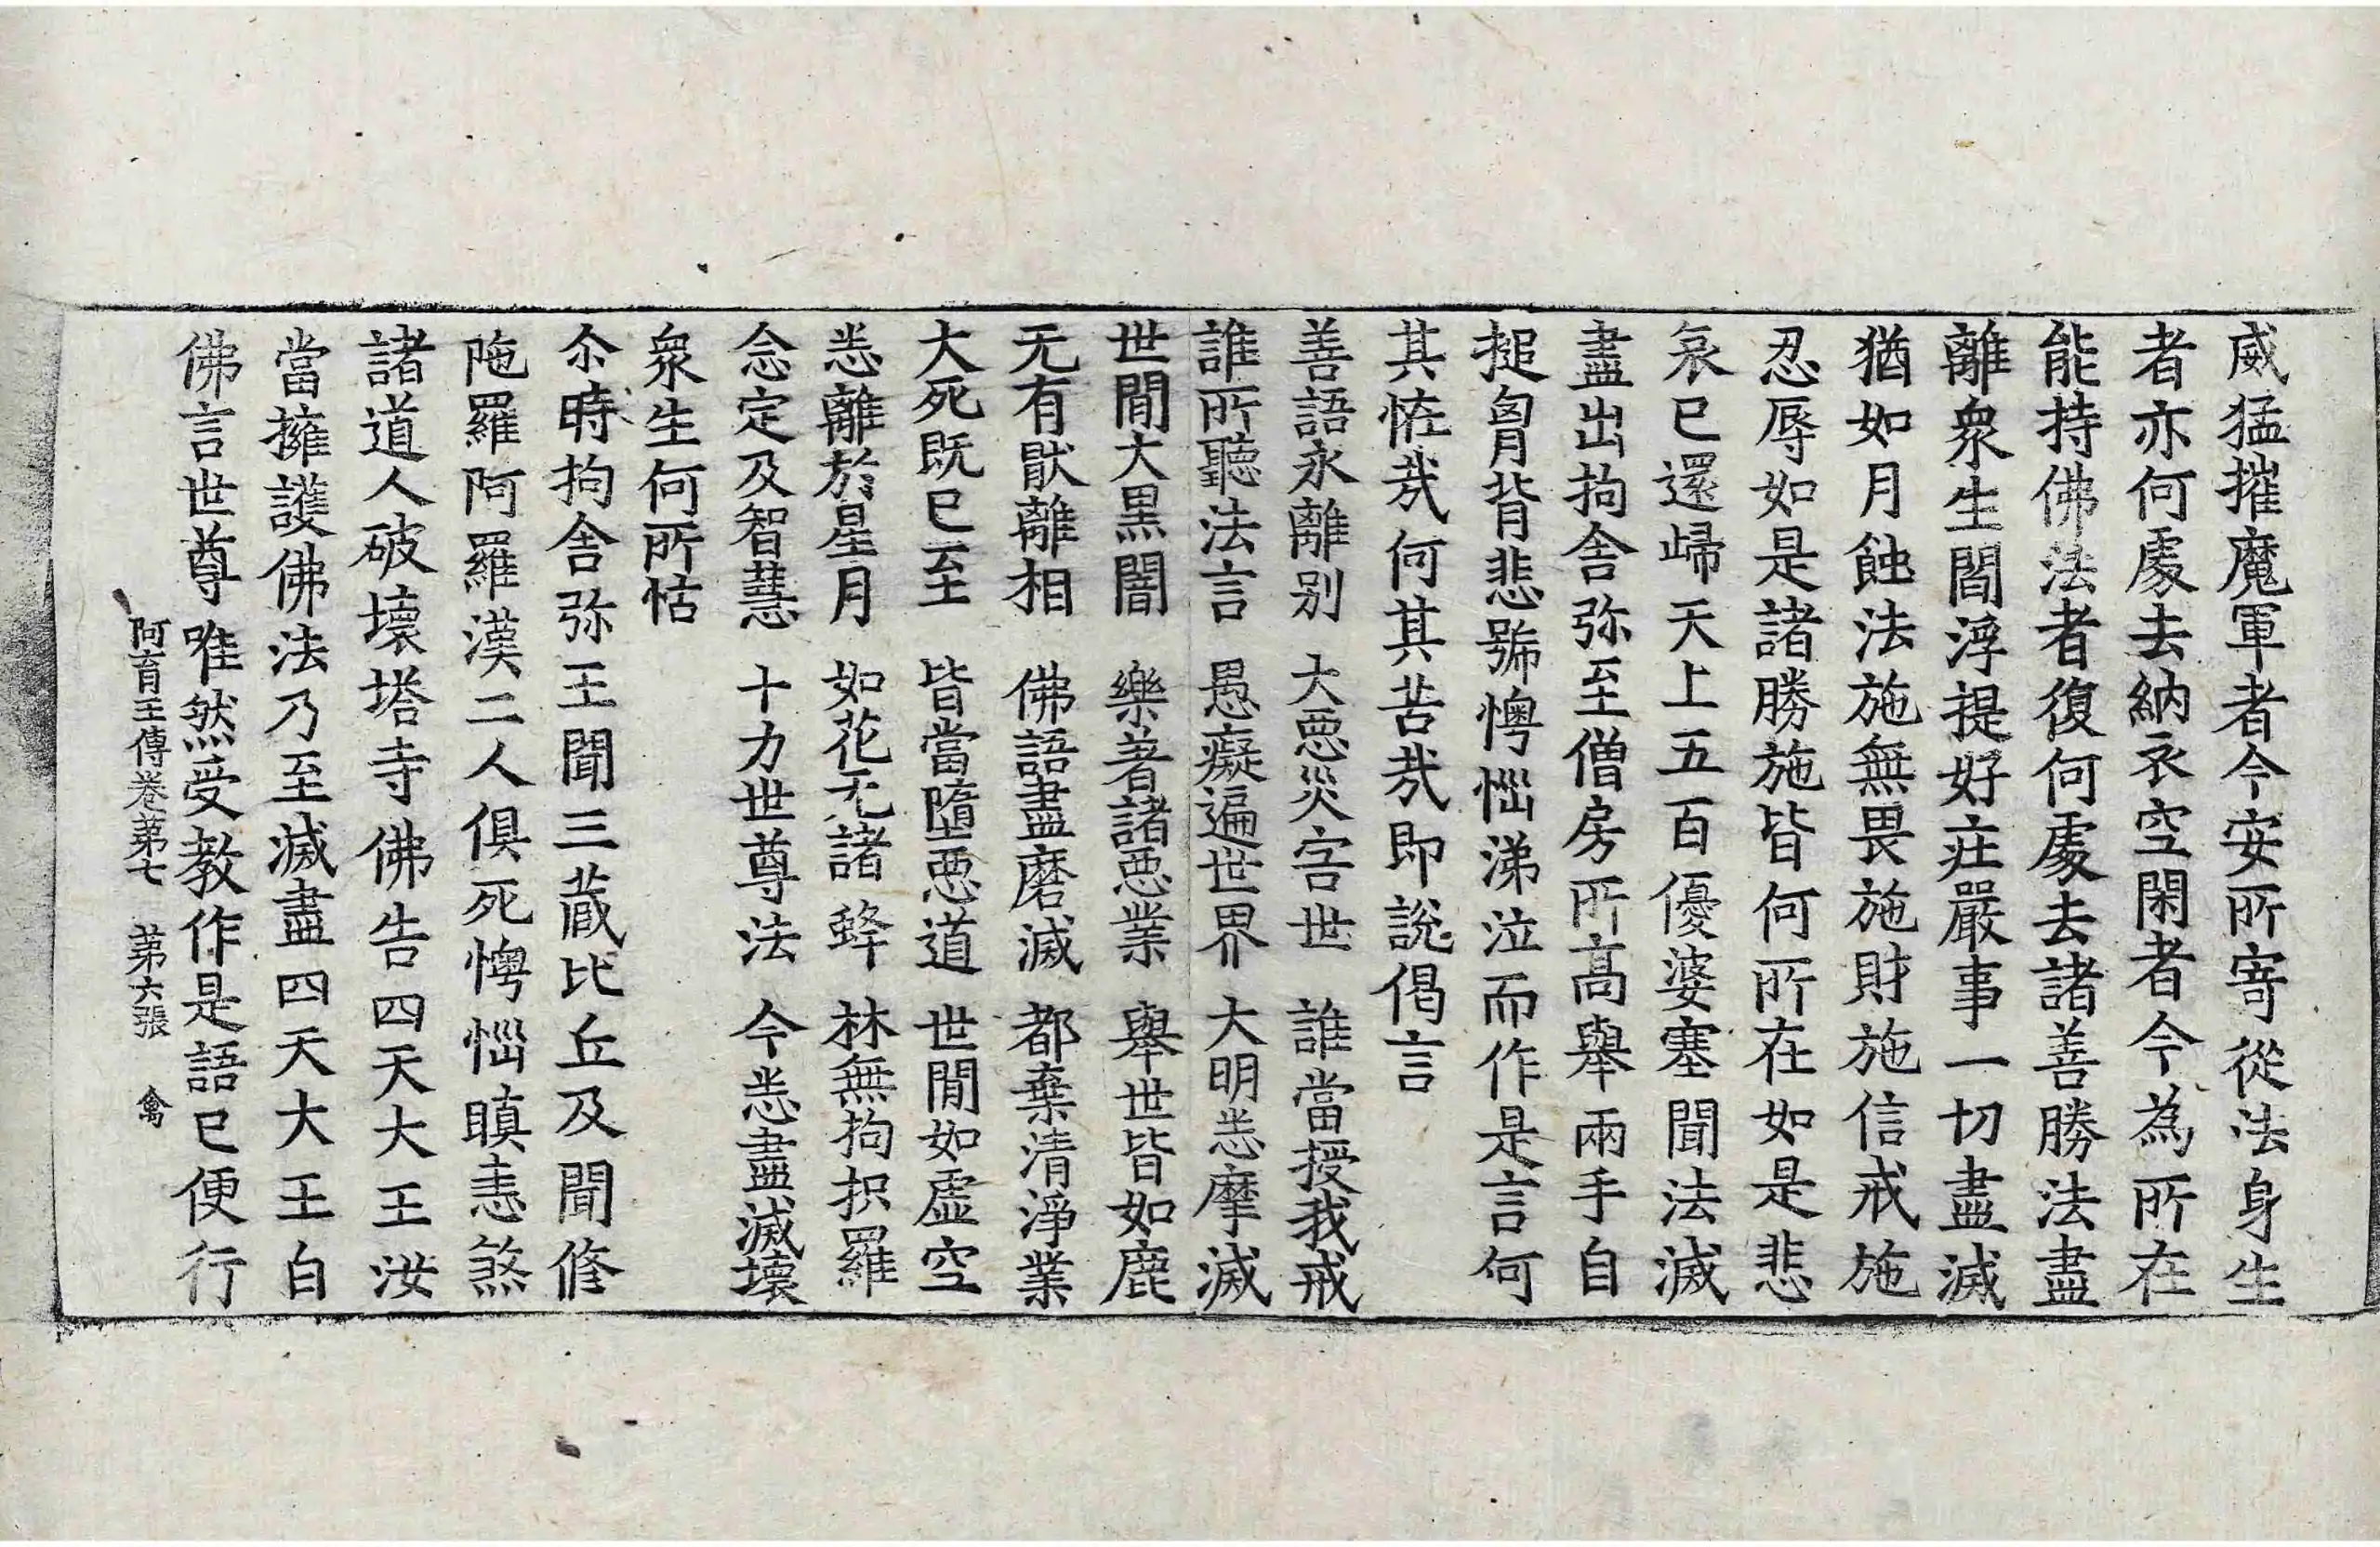 威猛摧魔軍者今安所寄從法身生
者亦何處去納衣空閑者今為所在
能持佛法者復何處去諸善勝法盡
離衆生閻浮提好疘嚴事一切盡滅
猶如月蝕法施無畏施財施信戒施
忍辱如是諸勝施皆何所在如是悲
哀已還歸天上五百優婆塞聞法滅
盡出拘舍弥至僧房所高舉兩手自
搥胷背悲號懊惱涕泣而作是言何
其恠㢤何其苦㢤即說偈言
善語永離别　大惡災害世　誰當授我戒
誰所聽法言　愚癡遍世界　大明悉摩滅
世間大黒闇　樂著諸惡業　舉世皆如鹿
无有猒離相　佛語盡磨滅　都棄清淨業
大死既已至　皆當墮惡道　世間如虛空
悉離於星月　如花无諸蜂　林無拘抧羅
念定及智慧　十力世尊法　今悉盡滅壞
衆生何所怙
尒時拘舍弥王聞三藏比丘及聞修
陁羅阿羅漢二人俱死懊惱瞋恚煞
諸道人破壞塔寺佛告四天大王汝
當擁護佛法乃至滅盡四天大王白
佛言世尊唯然受教作是語已便行
阿育王傳卷苐七　苐六張　禽